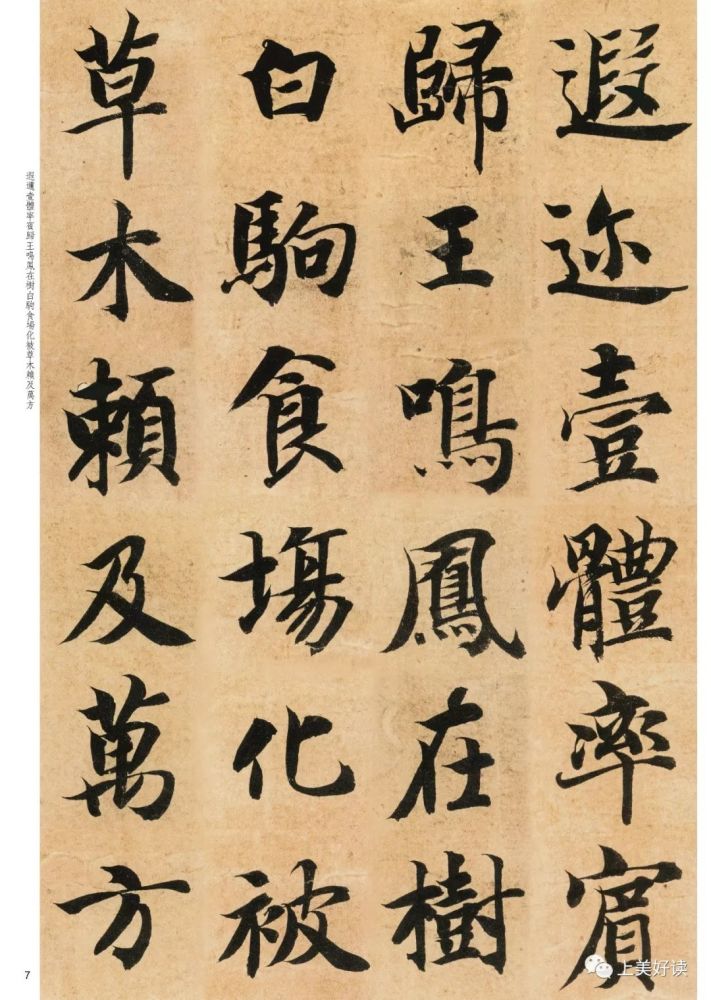 遐迩壹體率賓
歸王鳴鳳在樹
白駒食場化被
草木賴及萬方
遐邇壹體率賓歸王鳴鳳在樹白駒食場化被草木賴及萬方
7
上美好读